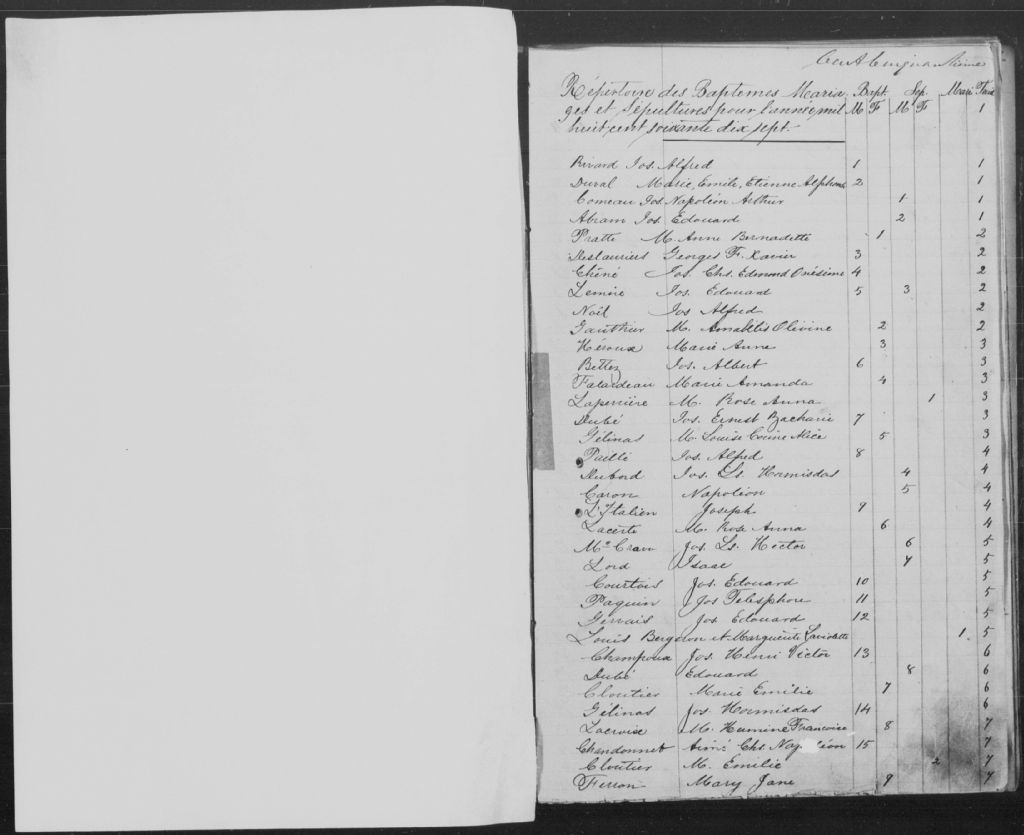 Répertoire des Baptemes Maria Bapt. Sép. Mari
ges et Sépultures pour l'année mil M F M F 1
huit cent soixante dix sept.
Rivard Jos. Alfred 1 1
Duval Marie, Emile, Etienne Alphonse 2 1
Comeau Jos Napoléon Arthur 1 1
Abram Jos. Edouard 2 1
Pratte M. Anne Bernadette 1 2
Deslauriers Georges F. Xavier 3 2
Chêné Jos. Chs. Edmond Onésime 4 2
Lemire Jos. Edouard 5 3 2
Noël Jos Alfred 2
Gauthier M. Olivine 2 2
Héroux Marie Anne 3 3
Bettez Jos. Albert 6 3
Falardeau Marie Amanda 4 3
Laperrière M. Rose Anna 1 3
Dubé Jos. Ernest Zacharie 7 3
Gélinas M. Louise Corine Alice 5 3
Paillé Jos. Alfred 8 4
Dubord Jos. Ls. Hormisdas 4 4
Caron Napoléon 5 4
L'Italien Joseph 9 4
Lacerte M. Rose Anna 6 4
Jos. Ls. Hector 6 5
Lord Isaac 7 5
Courtois Jos. Edouard 10 5
Paquin Jos Telesphore 11 5
Gervais Jos Edouard 12 5
Louis Bergeron et Marguerite Laviolette 1. 5
Champoux Jos. Henri Victor 13 6
Dubé Edouard 8 6
Cloutier Marie Emilie 7 6
Gélinas Jos. Hormisdas 14 6
Lacroix M. Hermine Francoise 8 7
Chandonnet Aimé Chs. Napoléon 15 7
Cloutier M. Emilie 2 7
Ferron Mary Jane 9 7